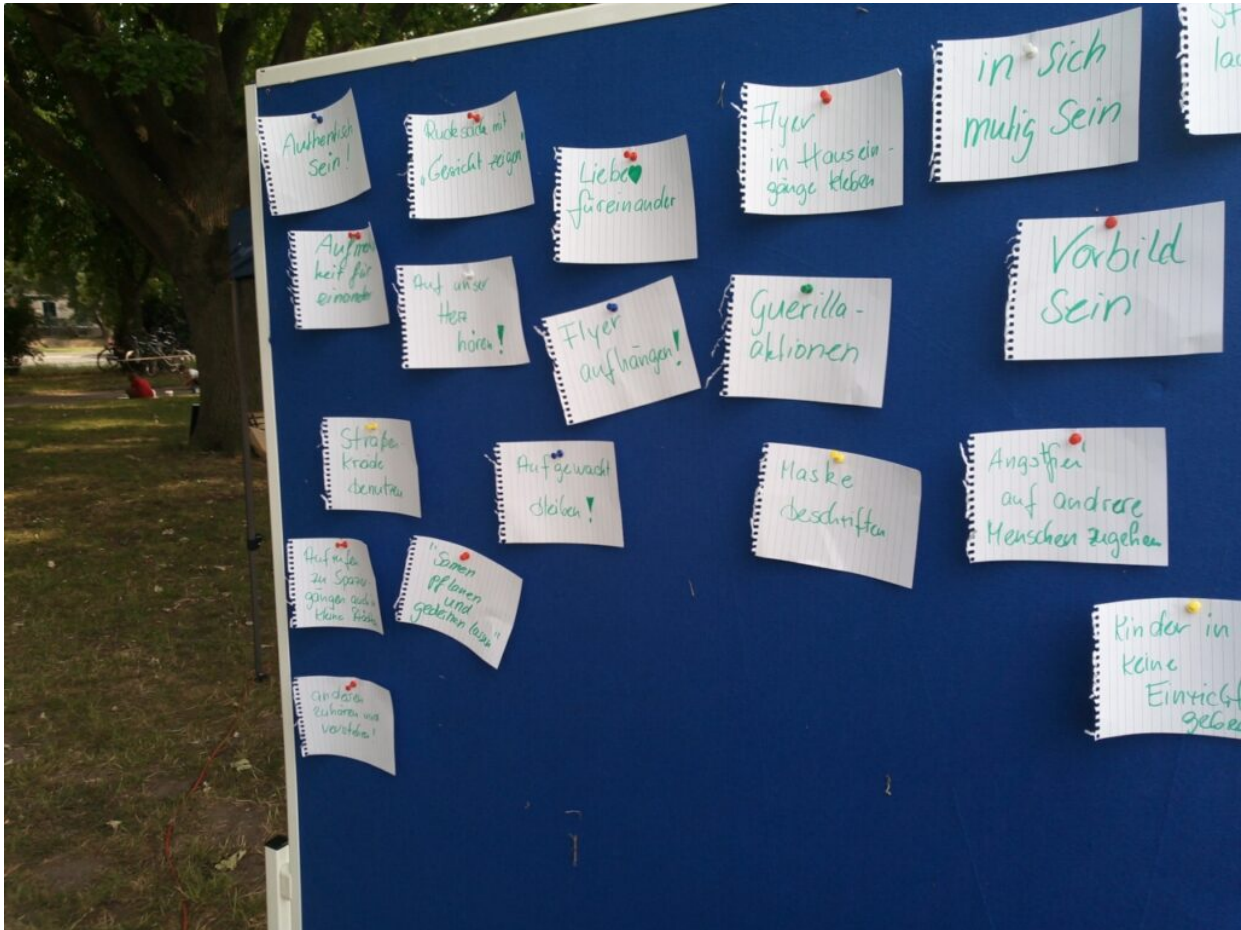 Authentisch
sein!
Rucksäcke mit
„Gesicht zeigen"
Liebe
füreinander
Flyer
in Hausein-
gänge kleben
in sich
mutig sein
St
lac
Aufme
heit für
einander
Auf unser
Herz
hören!
Flyer
aufhängen!
Guerilla-
aktionen
Vorbild
sein
Straßen
kreide
benutzen
Aufgewacht
bleiben!
Maske
beschriften
Angstfrei
auf andrere
Menschen zugehen
Aufrufen
zu Spazier-
gängen auch in
kleine
"Samen
pflanen
und
gedeihen lassen"
anderen
zuhören und
verstehen!
Kinder in
keine
Einricht
geben